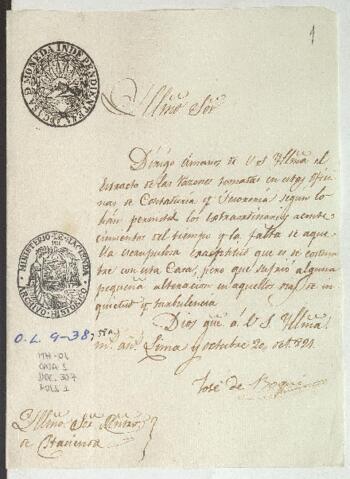 1
CASA D MONEDA INDEPENDIENTE
Yllmo Sor
Dirigo á manos de V.S. Yllma el
extracto de las razones tomadas en estas ofici
nas de Contaduria y Tesoreria segun lo
han permitido las extraordinarias acaeci
cimientos del tiempo y la falta de aque
lla escrupulosa exactitud que es de costum
bre con esta Casa, pero que sufrió alguna
pequeña alteracion en aquellos dias de in
quietud y turbulencia
Dios gue á V.S. Yllma
ms. as. Lima y octubre 20 de 1821
José de Boqui
MINISTERIO DE HACIENDA
ARCHIVO HISTORICO
O.L. 9-38
MH-OL
CAJA 1
DOC. 307
FOLS 1
Yllmo Sor Mntro
de Hacienda